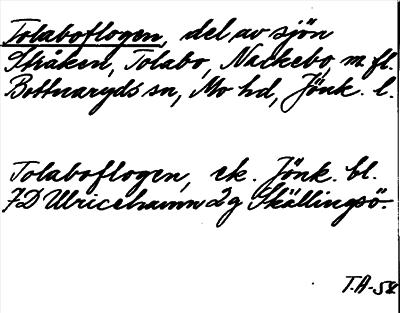 Tolaboflogen, del av sjön
Stråken, Tolabo, Nackebo, m. fl.
Bottnaryds sn, Mo hd, Jönk. l.
Tolaboflogen, ek. Jönk. bl.
7D Ulricehamn 2g Skällingsö.